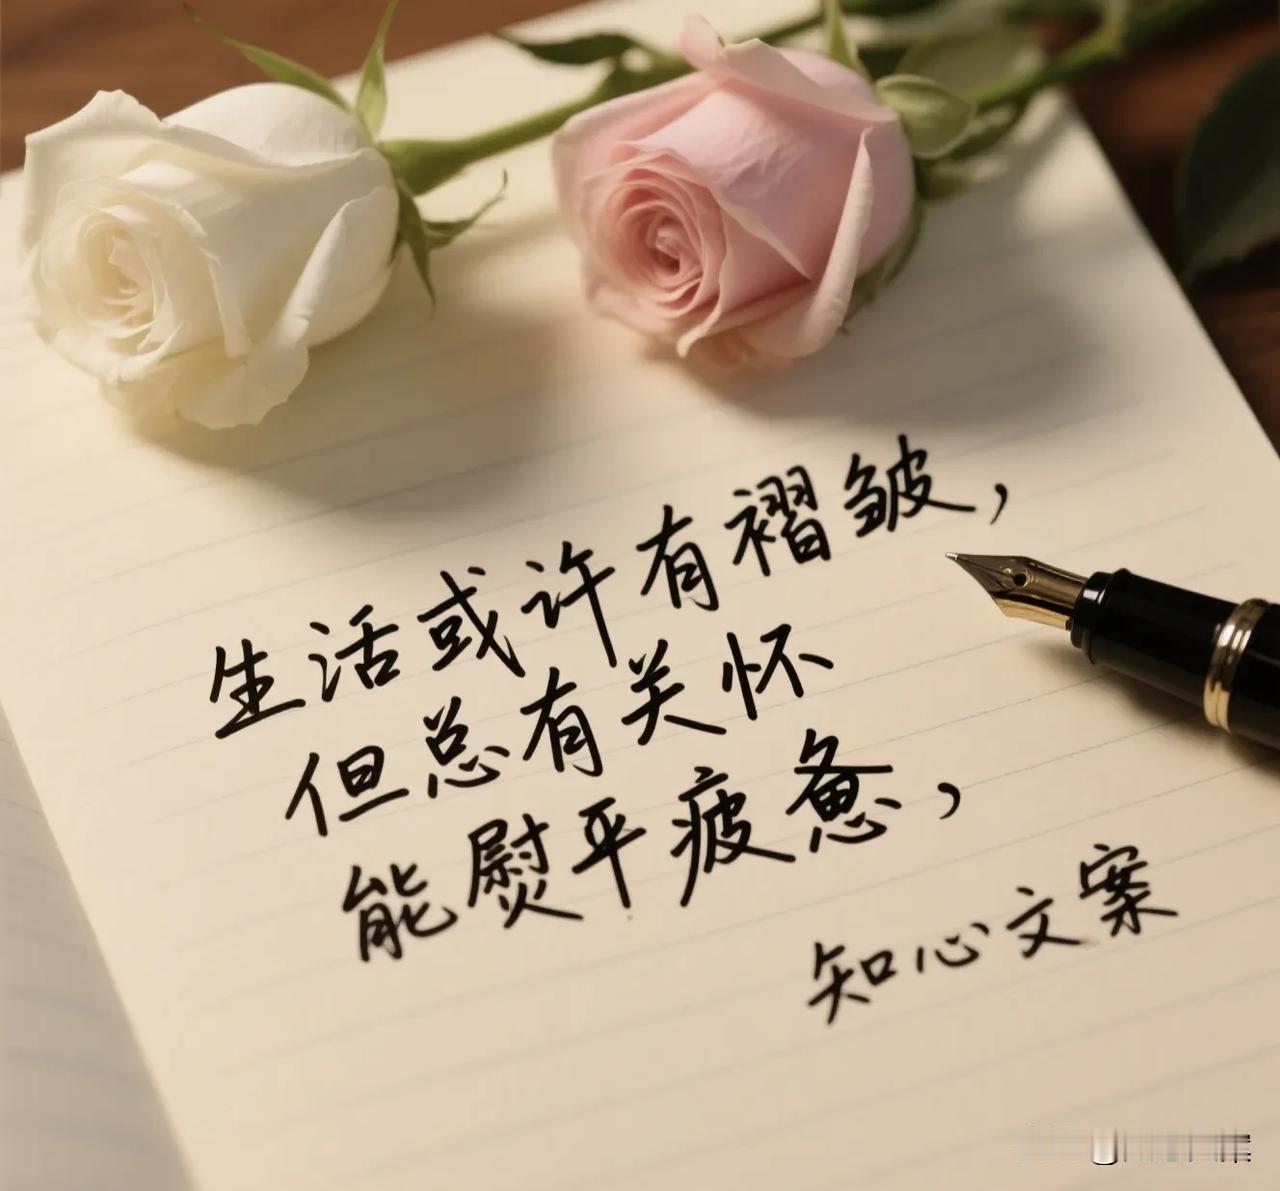 生活或许有褶皱，
但总有关怀
能熨平疲惫，
知心文案